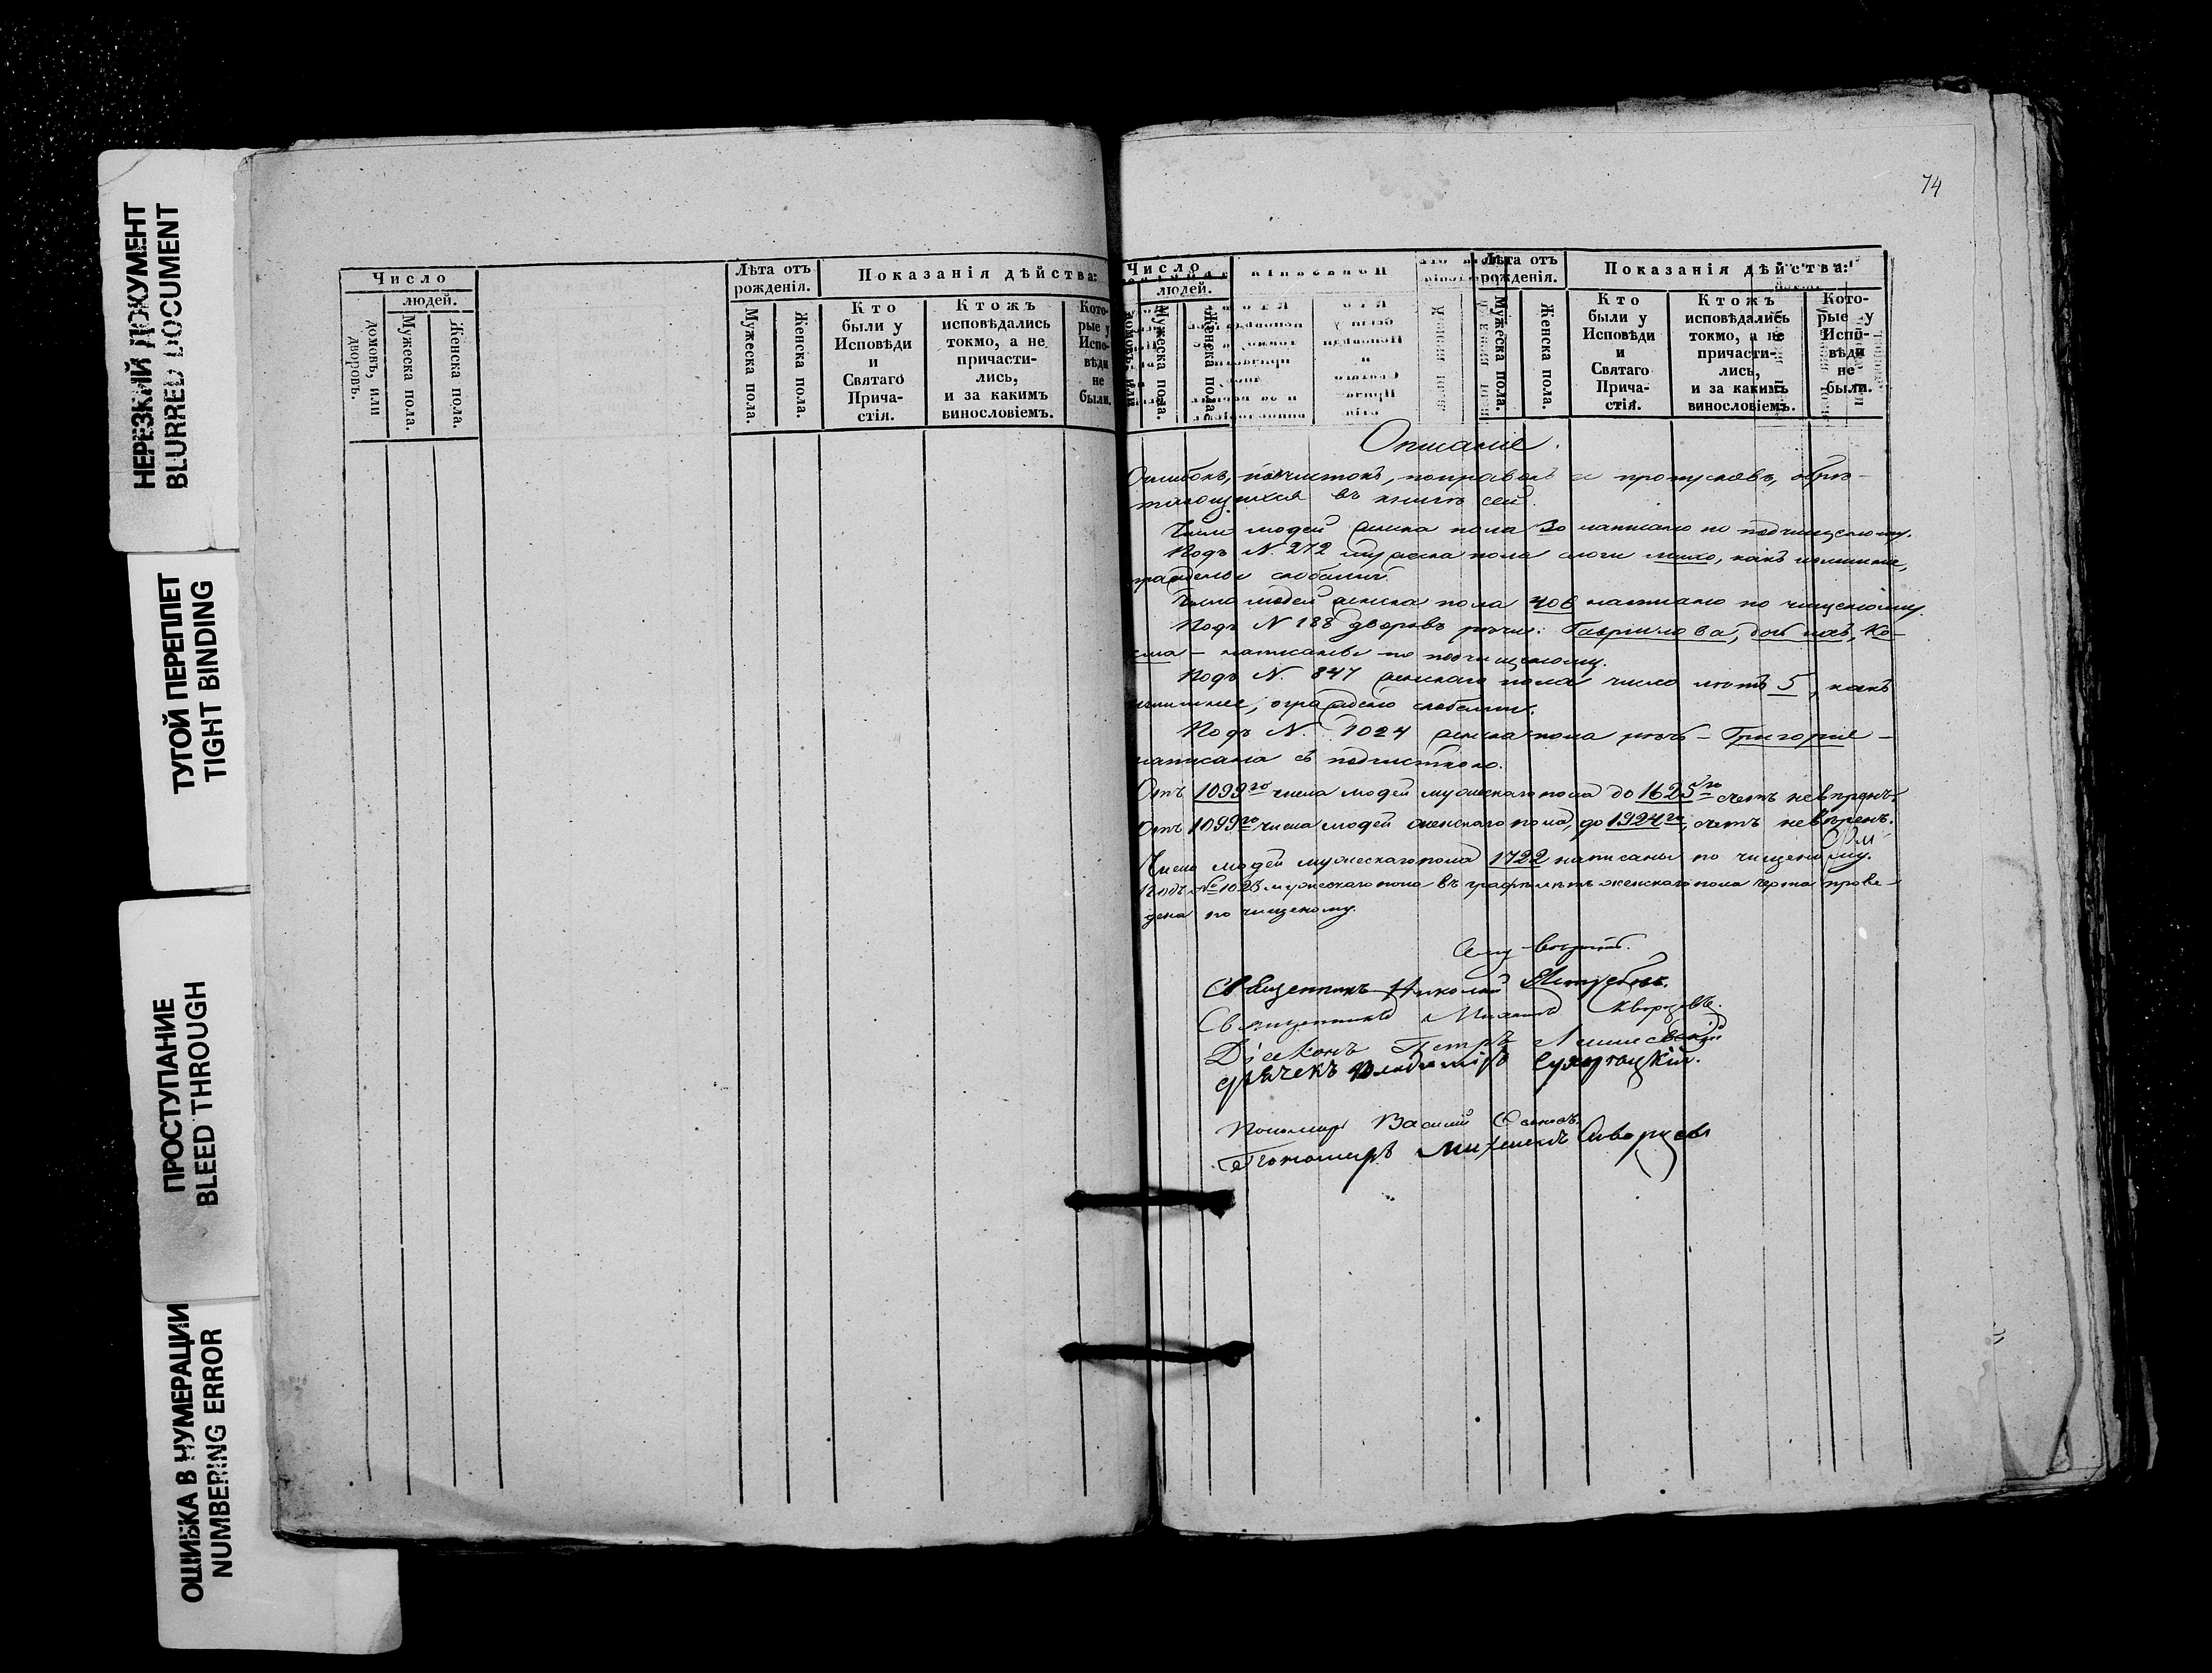 НЕРЕЗКИЙ ДОКУМЕНТ
BLURRED DOCUMENT
ТУГОЙ ПЕРЕПЛЕТ
TIGHT BINDING
ПРОСТУПАНИЕ
BLEED THROUGH
ОШИБКА В НУМЕРАЦИИ
NUMBERING ERROR
Число
людей.
домовъ, или
дворовъ.
Мужеска пола.
Женска пола.
Лѣта отъ
рожденія.
Мужеска пола.
Женска пола.
Показанія дѣйства:
Кто
были у
Исповѣди
и
Святаго
Прича-
стія.
Ктожъ
исповѣдались
токмо, а не
причасти-
лись,
и за какимъ
винословіемъ.
Кото-
рые у
Испо-
вѣди
не
были.
74
Число
людей.
домовъ, или
Мужеска пола.
Женска пола.
Лѣта отъ
рожденія.
Мужеска пола.
Женска пола.
Показанія дѣйства:
Кто
были у
Исповѣди
и
Святаго
Прича-
стія.
Ктожъ
исповѣдались
токмо, а не
причасти-
лись,
и за какимъ
винословіемъ.
Кото-
рые у
Испо-
вѣди
не
были.
Описание.
Ошибокъ, почистокъ, поправокъ и пропусковъ, обрѣ-
тающихся въ книгѣ сей.
Число людей женска пола 30 написано по подчищенному.
Подъ N. 272 мужеска пола слоги лишнее,
скобами.
Число людей женска пола 406 написано по чищеному.
Подъ N 188 дворовъ рѣчи: Гаврилова, Ко-
сма – написаны по подчищеному.
Подъ N. 847 женскаго пола число лѣтъ 5, какъ
излишнее, ограждено скобами.
Подъ N. 1024 женска пола рѣчь – Григорія –
написана съ подчисткою.
Отъ 1099го числа людей мужескаго пола до 1625го счетъ невѣренъ.
Отъ 1099го числа людей женскаго пола, до 1924го, счетъ невѣренъ.
Числа людей мужескаго пола 1722 написаны по чищеному.
Подъ № 1023 мужескаго пола въ графѣ лѣтъ женскаго пола черта прове-
дена по чищеному.
Священникъ Николай
Священникъ Михаилъ Скворцевъ.
Діаконъ Петръ
Дьячекъ Владиміръ
Пономарь Василій
Пономарь Михаилъ Скворцевъ